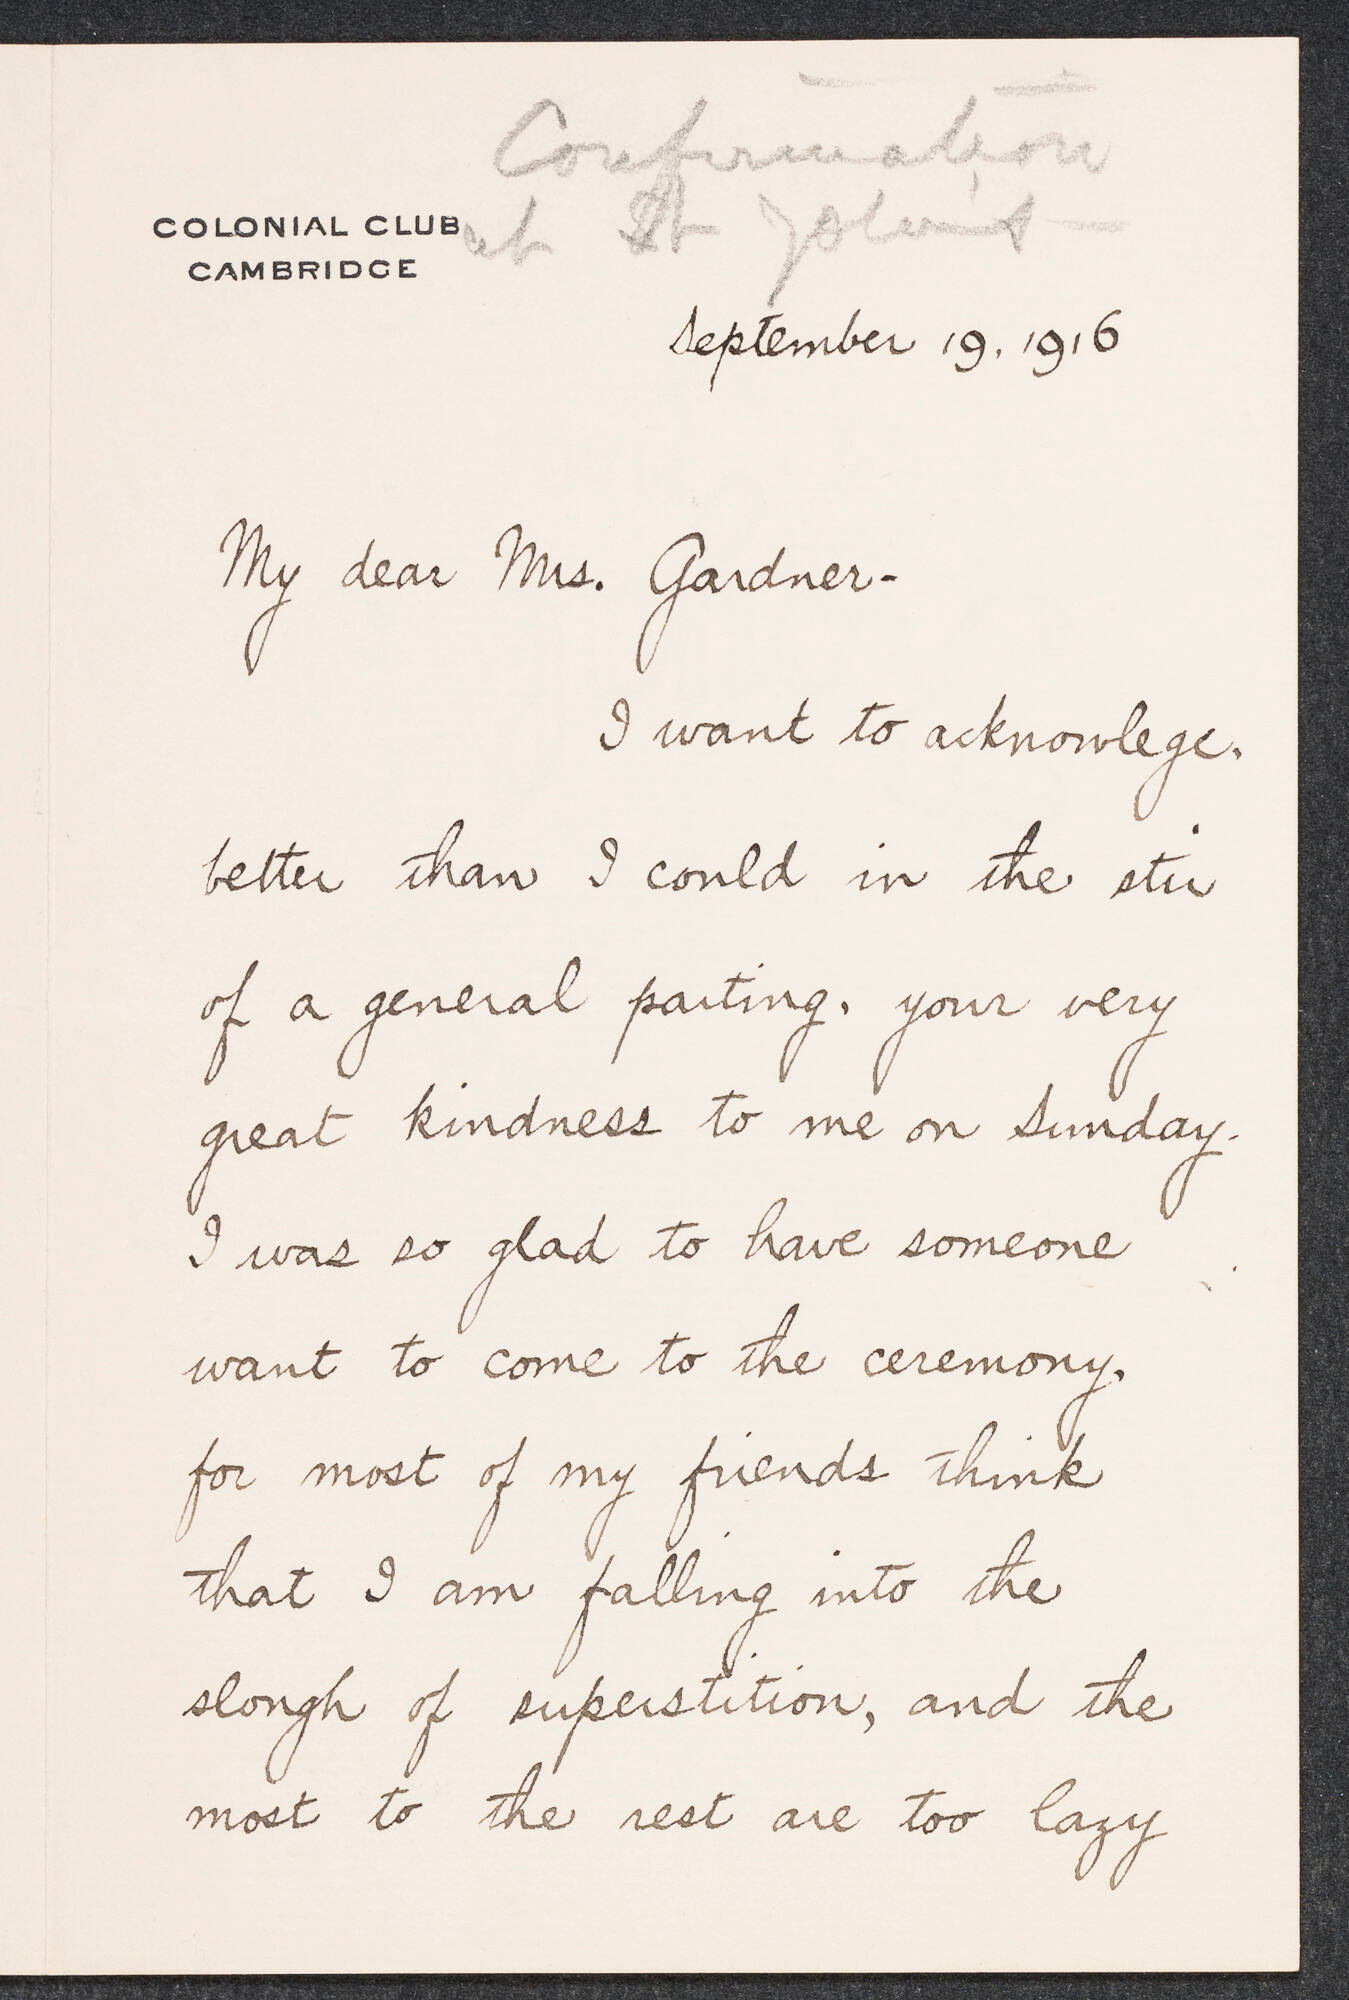 Confirmation
at St John's
COLONIAL CLUB
CAMBRIDGE
September 19. 1916
My dear Mrs. Gardner-
I want to acknowlege,
better than I could in the stir
of a general parting, your very
great kindness to me on Sunday.
I was so glad to have someone
want to come to the ceremony,
for most of my friends think
that I am falling into the
slough of superstition, and the
most to the rest are too lazy